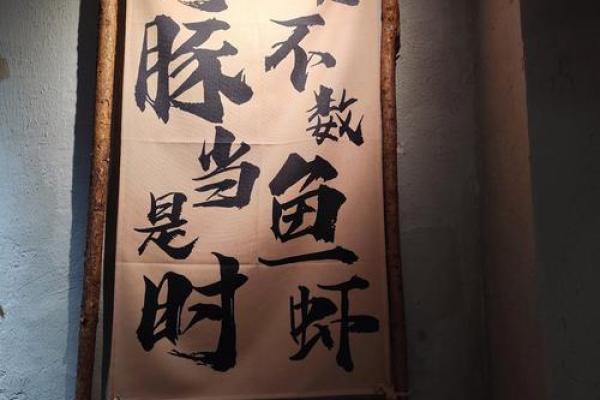 豚当是时
不数鱼虾